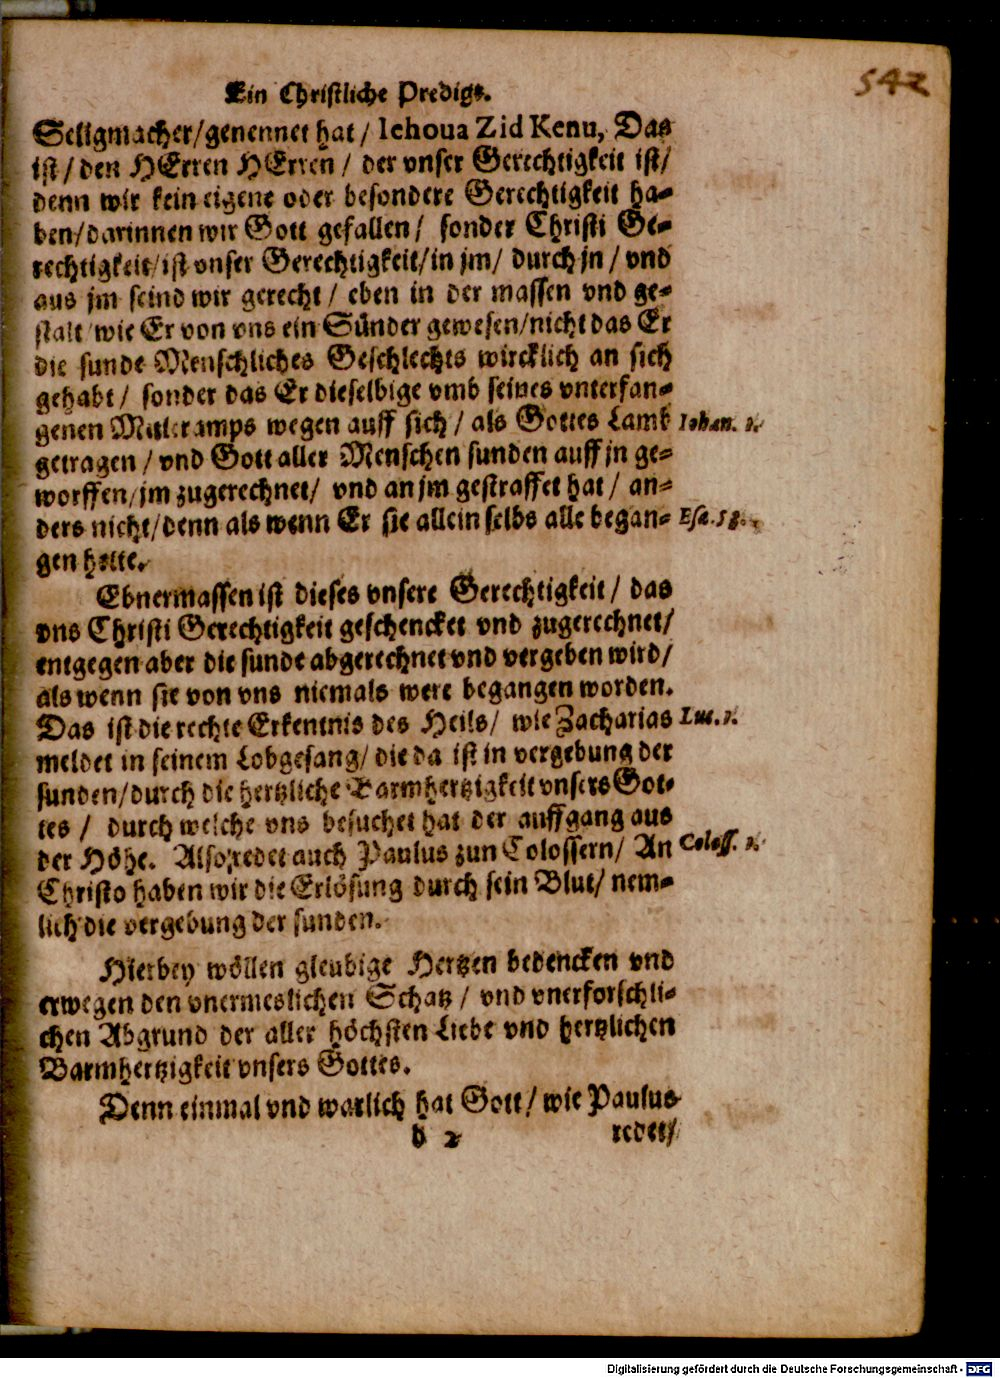 542
Ein Christliche Predigt.
Seligmacher/genennet hat / Iehoua Zid Kenu, Das
ist / den HErren HErren / der vnser Gerechtigkeit ist/
denn wir kein eigene oder besondere Gerechtigkeit ha-
ben/darinnen wir Gott gefallen / sonder Christi Ge-
rechtigkeit/ist vnser Gerechtigkeit/in jm/ durch jn / vnd
aus jm seind wir gerecht / eben in der massen vnd ge-
stalt wie Er von vns ein Sünder gewesen/nicht das Er
die sunde Menschliches Geschlechts wircklich an sich
gehabt / sonder das Er dieselbige vmb seines vnterfan-
genen Mitleramps wegen auff sich / als Gottes Lamb Iohan. 1.
getragen / vnd Gott aller Menschen sunden auff jn ge-
worffen/jm zugerechnet/ vnd an jm gestraffet hat / an-
ders nicht/denn als wenn Er sie allein selbs alle began- Esa. 53.
gen hette.
Ebnermassen ist dieses vnsere Gerechtigkeit / das
vns Christi Gerechtigkeit geschencket vnd zugerechnet/
entgegen aber die sunde abgerechnet vnd vergeben wird/
als wenn sie von vns niemals were begangen worden.
Das ist die rechte Erkentnis des Heils/ wie Zacharias Luc. 1.
meldet in seinem Lobgesang/ die da ist in vergebung der
sunden/durch die hertzliche Barmhertzigkeit vnsers Got-
tes / durch welche vns besuchet hat der auffgang aus
der Höhe. Also redet auch Paulus zun Colossern/ An Coloss. 1.
Christo haben wir die Erlösung durch sein Blut/ nem-
lich die vergebung der sunden.
Hierbey wöllen gleubige Hertzen bedencken vnd
erwegen den vnermeslichen Schatz / vnd vnerforschli-
chen Abgrund der aller höchsten Liebe vnd hertzlichen
Barmhertzigkeit vnsers Gottes.
Denn einmal vnd warlich hat Gott / wie Paulus
d 2 redet/
Digitalisierung gefördert durch die Deutsche Forschungsgemeinschaft - DFG